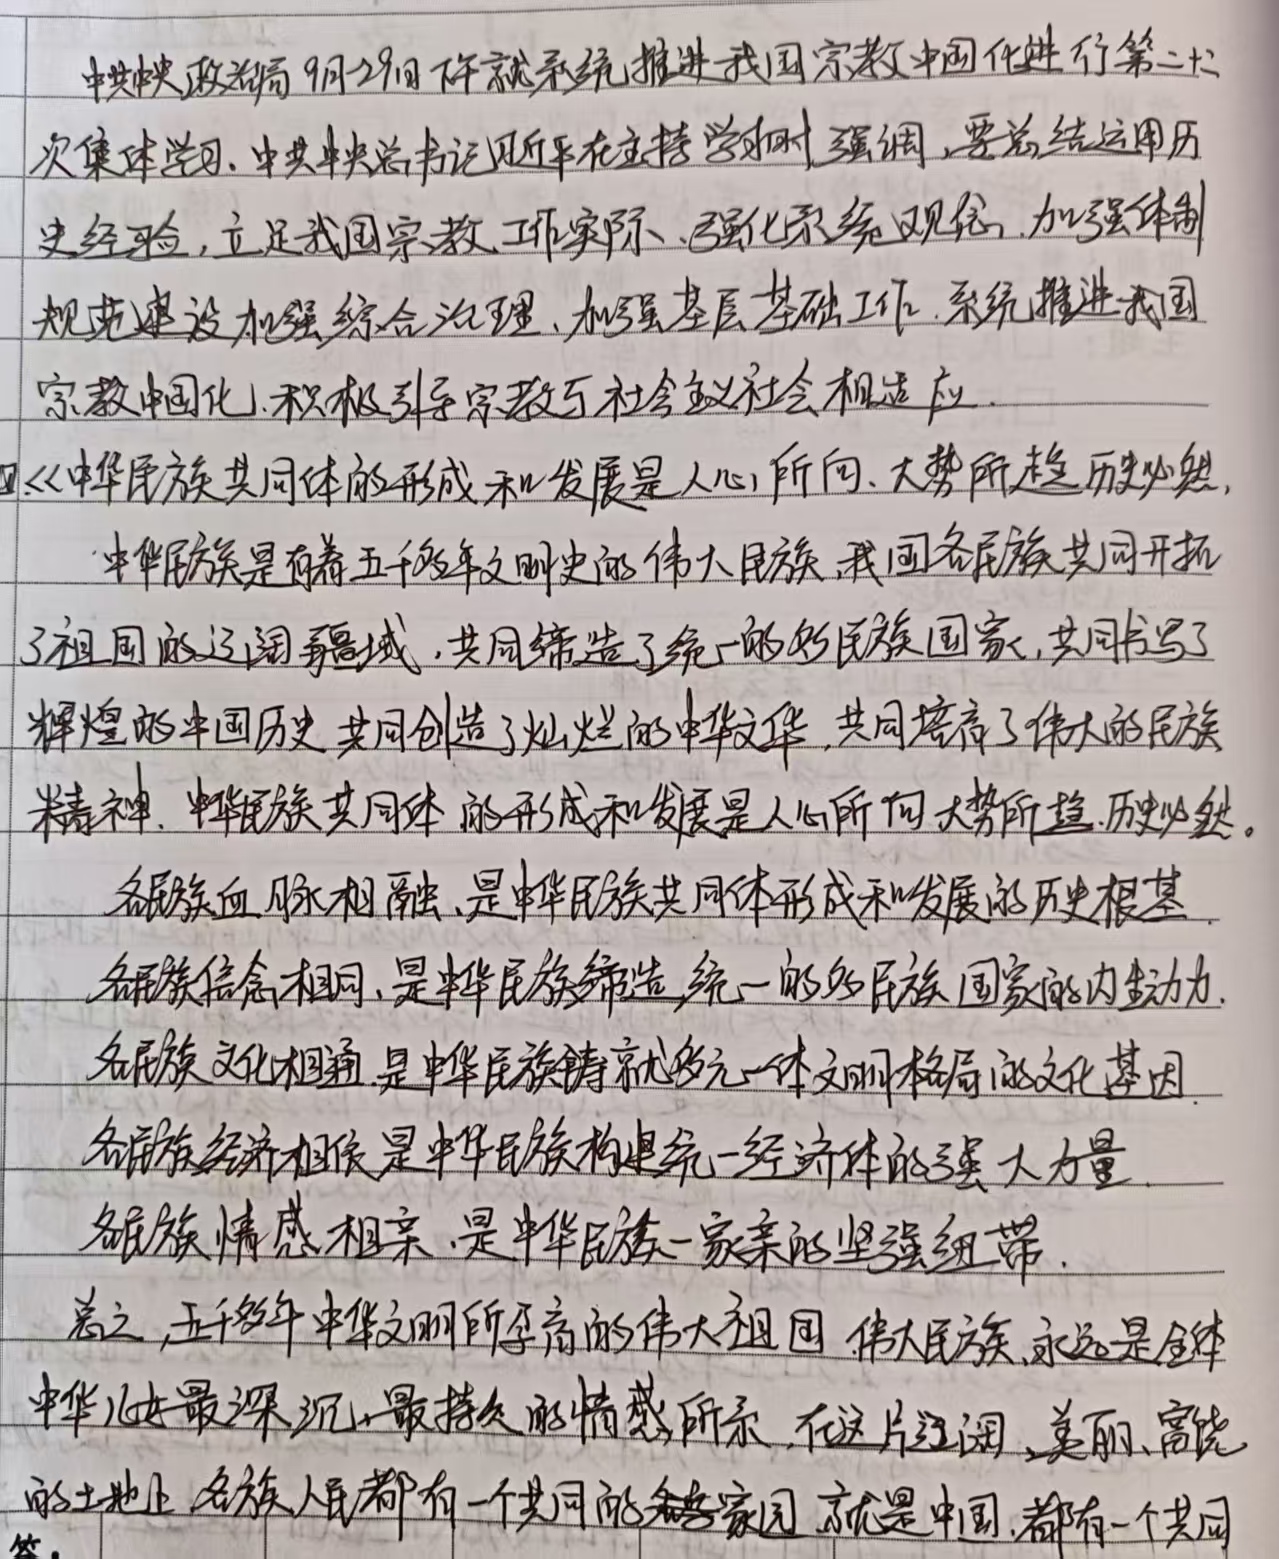 中共中央政治局9月29日下午就系统推进我国宗教中国化进行第二十二
次集体学习.中共中央总书记习近平在主持学习时强调,要总结运用历
史经验,立足我国宗教工作实际、强化系统观念,加强体制
规范建设加强综合治理、加强基层基础工作.系统推进我国
宗教中国化.积极引导宗教与社会主义社会相适应.
四.<<中华民族共同体的形成和发展是人心所向、大势所趋历史必然,
中华民族是有着五千多年文明史的伟大民族,我国各民族共同开拓
了祖国的辽阔疆域,共同缔造了统一的多民族国家,共同书写了
辉煌的中国历史 共同创造了灿烂的中华文华,共同培育了伟大的民族
精神.中华民族共同体的形成和发展是人心所向大势所趋.历史必然。
各民族血脉相融、是中华民族共同体形成和发展的历史根基.
各民族信念相同、是中华民族缔造统一的多民族国家的内生动力.
各民族文化相通.是中华民族铸就多元一体文明格局的文化基因.
各民族经济相依是中华民族构建统一经济体的强大力量.
各民族情感相亲.是中华民族一家亲的坚强纽带.
总之,五千多年中华文明所孕育的伟大祖国.伟大民族、永远是全体
中华儿女最深沉、最持久的情感所系.在这片辽阔、美丽、富饶
的土地上.各族人民都有一个共同的家园 就是中国.都有一个共同
答: